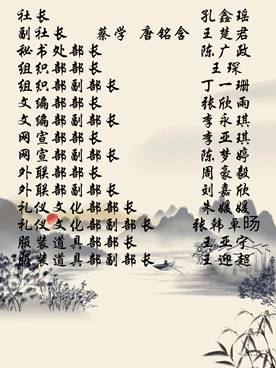 社长 孔鑫瑶
副社长 蔡学 唐铭含 王楚君
秘书处部长 陈广政
组织部部长 王琛
组织部副部长 丁一珊
文编部部长 张欣雨
文编部副部长 李永琪
网宣部部长 李亚琪
网宣部副部长 陈梦婷
外联部部长 周豪毅
外联部副部长 刘嘉欣
礼仪文化部部长 朱媛媛
礼仪文化部副部长 张韩卓旸
服装道具部部长 王亚宁
服装道具部副部长 王迎超